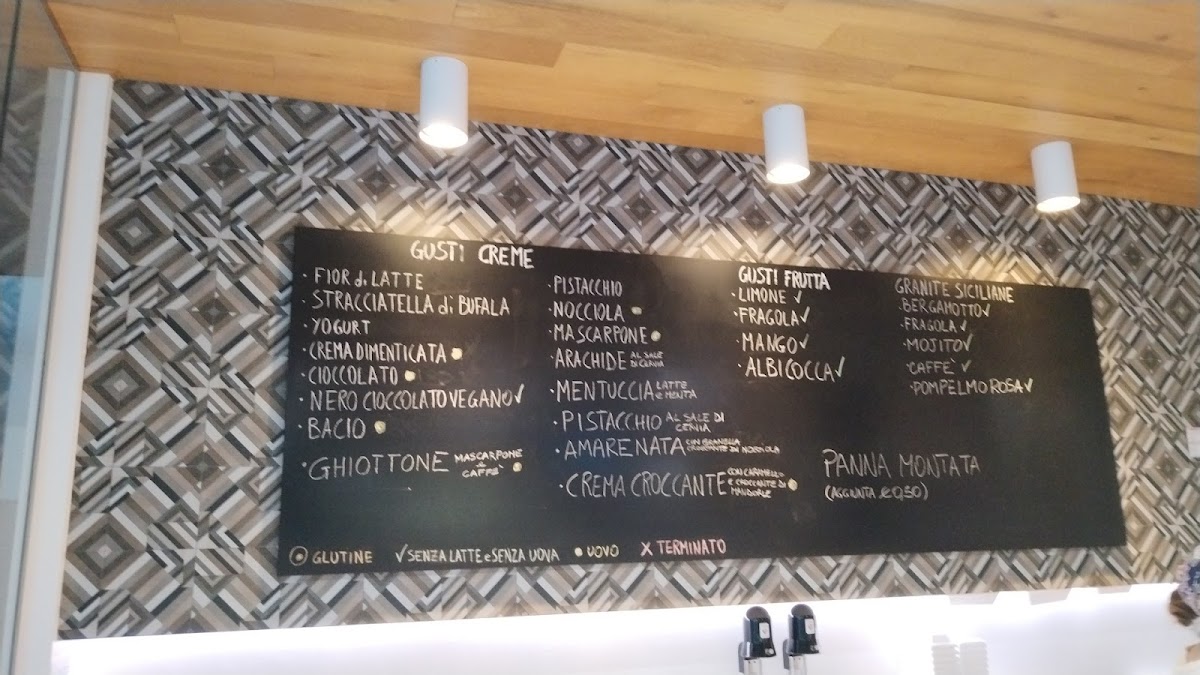 GUSTI CREME
· FIOR di LATTE
· STRACCIATELLA di BUFALA
· YOGURT
· CREMA DIMENTICATA
· CIOCCOLATO
· NERO CIOCCOLATO VEGANO ✓
· BACIO
· GHIOTTONE MASCARPONE
e
CAFFÈ
· PISTACCHIO
· NOCCIOLA
· MASCARPONE
· ARACHIDE AL SALE
DI CERVIA
· MENTUCCIA LATTE
e MENTA
· PISTACCHIO AL SALE DI
CERVIA
· AMARENATA CON GRANELLA
CROCCANTE DI NOCCIOLA
· CREMA CROCCANTE CON CARAMELLO
E CROCCANTE DI
MANDORLE
GUSTI FRUTTA
· LIMONE ✓
· FRAGOLA ✓
· MANGO ✓
· ALBICOCCA ✓
GRANITE SICILIANE
· BERGAMOTTO ✓
· FRAGOLA ✓
· MOJITO ✓
· CAFFÈ ✓
· POMPELMO ROSA ✓
PANNA MONTATA
(AGGIUNTA € 0,50)
GLUTINE ✓ SENZA LATTE e SENZA UOVA • UOVO X TERMINATO